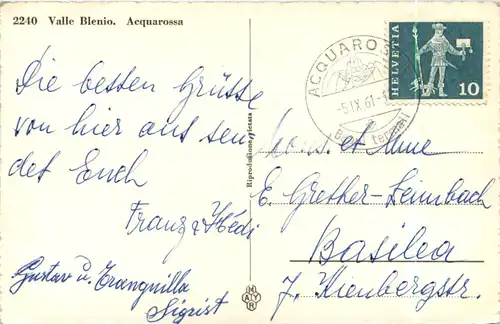 2240 Valle Blenio. Acquarossa
Die besten Grüsse
von hier aus sen
det Euch
Franz & Hedi
Gustav u. Tranquilla
Sigrist
Riproduzione vietata
HAYR
ACQUAROS
-5.IX.61-
termali
HELVETIA
10
Mons. et Mme
E. Grether-Leimbach
Basilea
7. Kienbergstr.